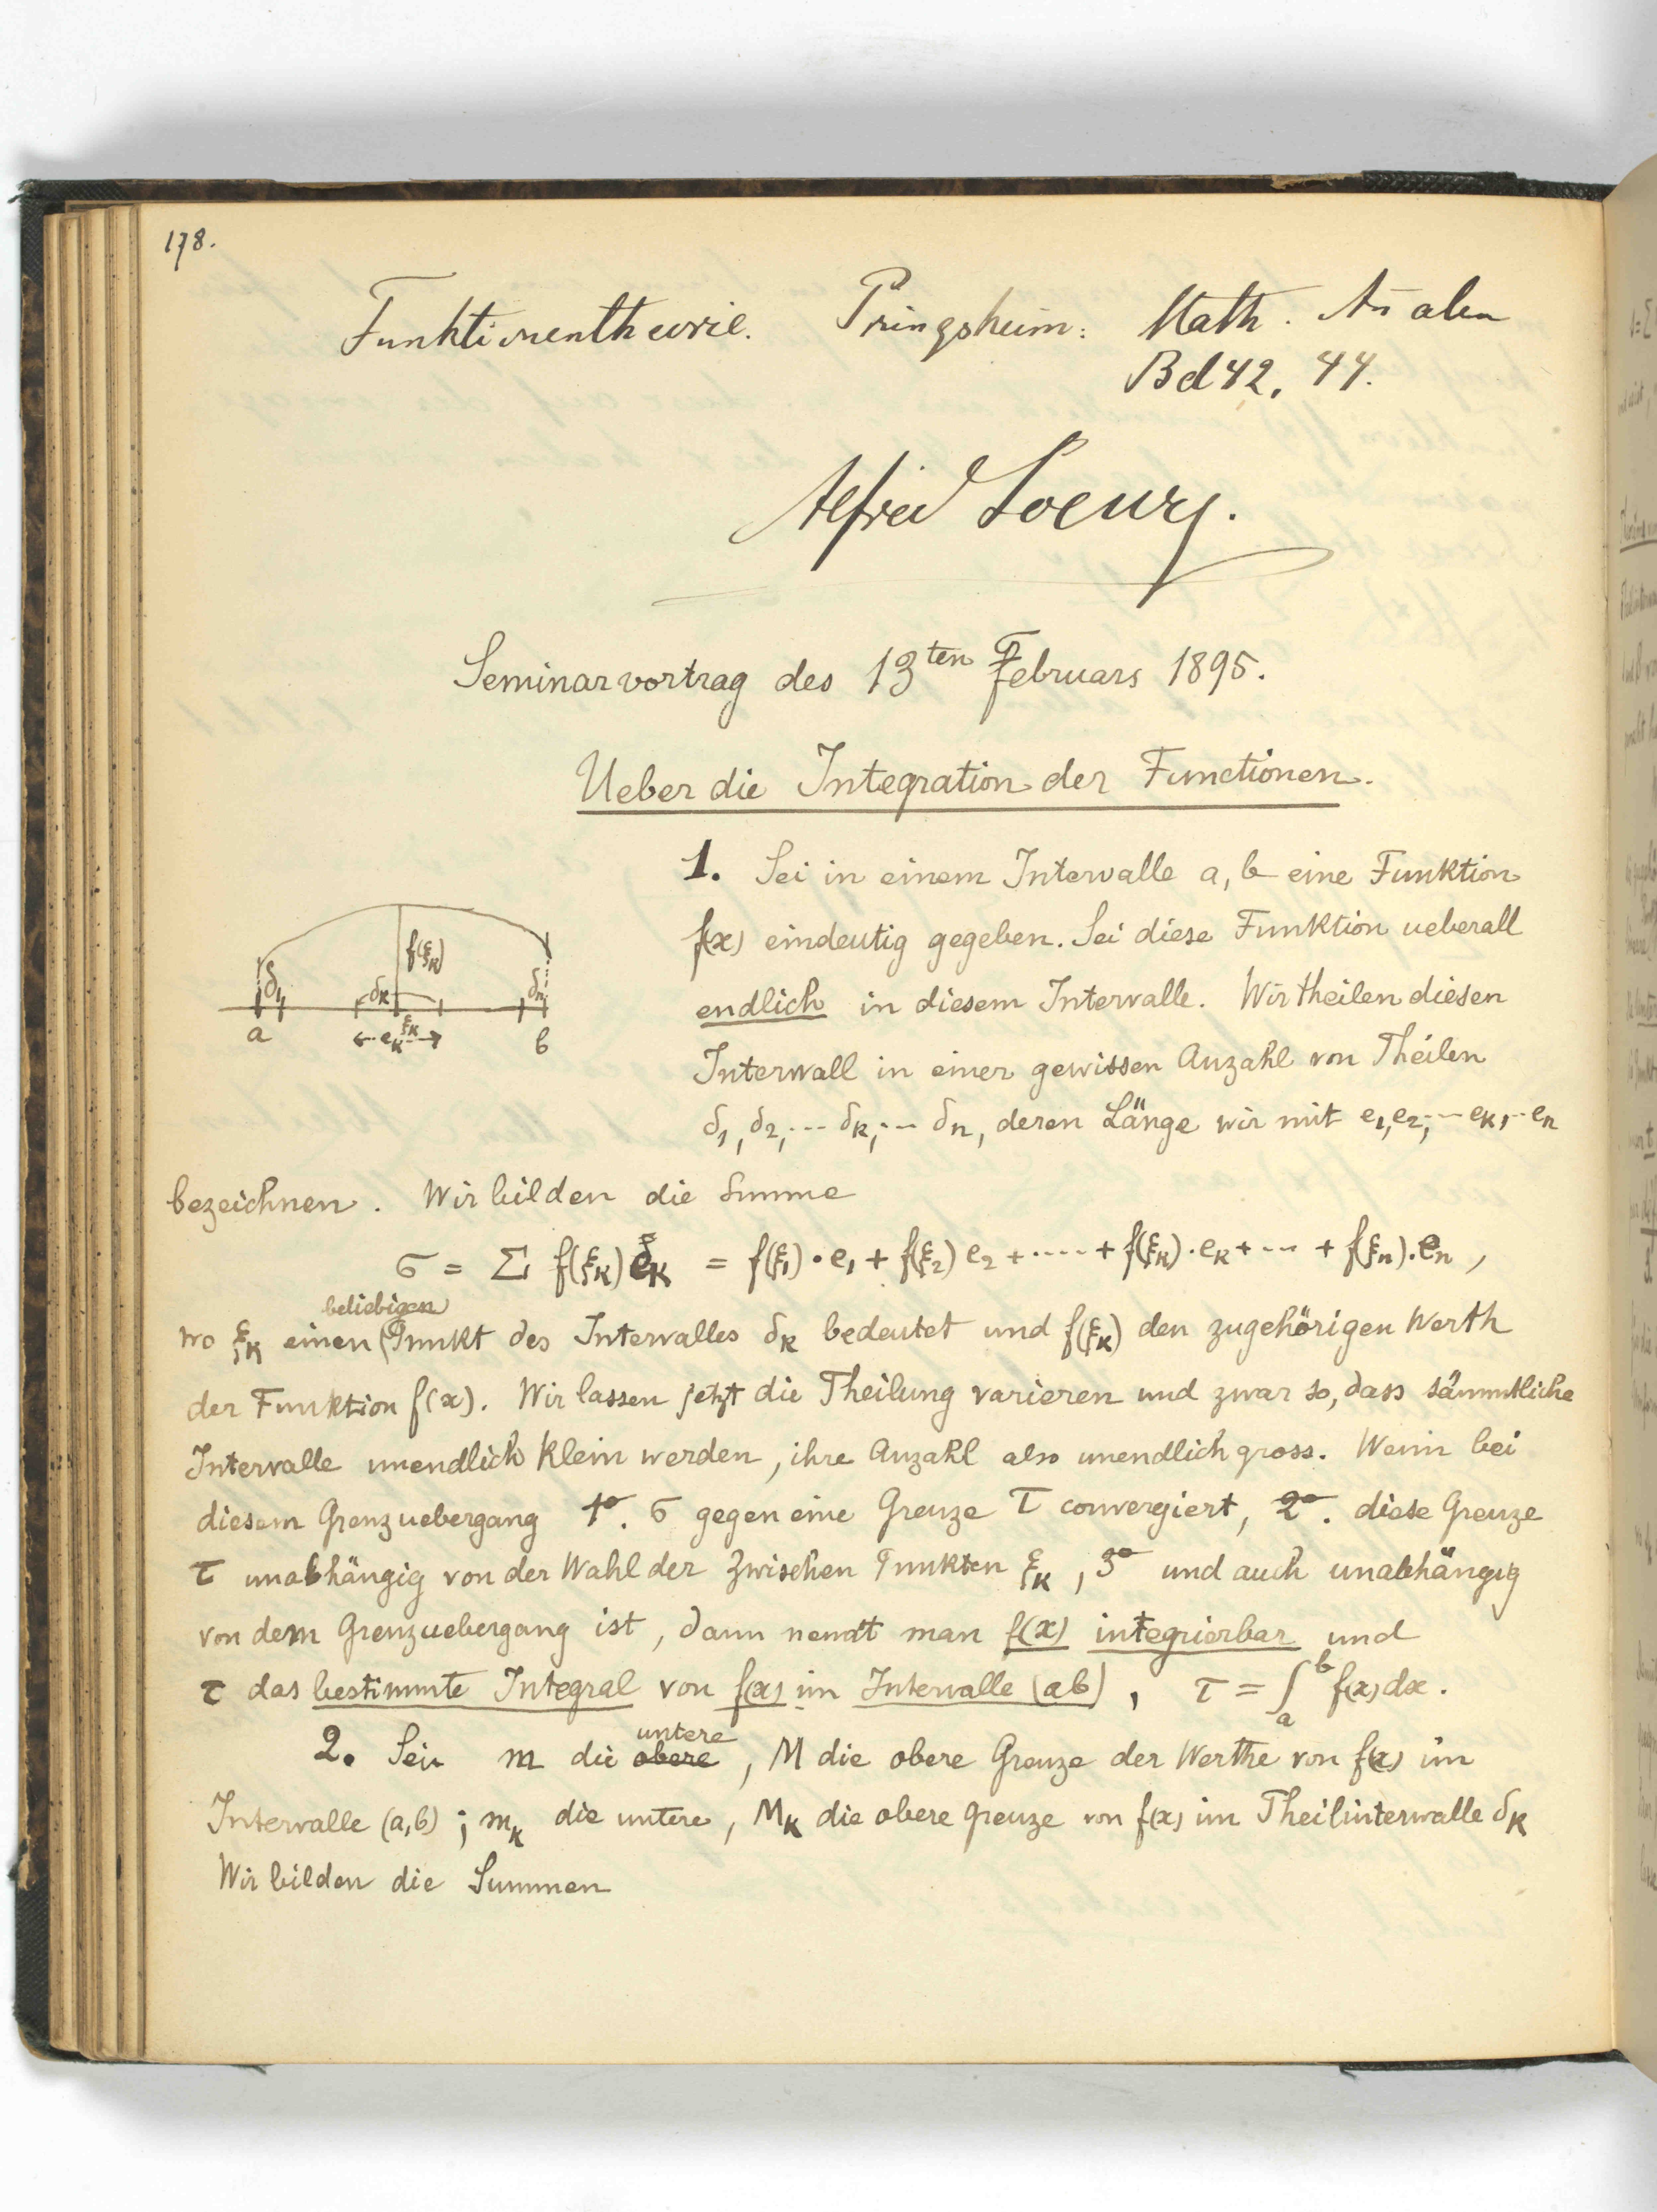 178.
Funktionentheorie. Pringsheim: Math. Analen
Bd 42, 44.
Alfred Loewy.
Seminarvortrag des 13ten Februars 1895.
Ueber die Integration der Functionen.
1. Sei in einem Intervalle a, b eine Funktion
f(x) eindeutig gegeben. Sei diese Funktion ueberall
endlich in diesem Intervalle. Wir theilen diesen
Intervall in einer gewissen Anzahl von Theilen
δ1, δ2, --- δk, -- δn, deren Länge wir mit e1, e2, -- ek, -- en
f(ξk)
δ1 δk δn
a ek ξk b
bezeichnen. Wir bilden die Summe
σ = Σ f(ξk) ek = f(ξ1)·e1 + f(ξ2) e2 + ···· + f(ξk)·ek + ··· + f(ξn)·en,
wo ξk einen beliebigen Punkt des Intervalles δk bedeutet und f(ξk) den zugehörigen Werth
der Funktion f(x). Wir lassen jetzt die Theilung varieren und zwar so, dass sämmtliche
Intervalle unendlich klein werden, ihre Anzahl also unendlich gross. Wenn bei
diesem Grenzuebergang 1°. σ gegen eine Grenze τ convergiert, 2°. diese Grenze
τ unabhängig von der Wahl der Zwischen Punkten ξk, 3° und auch unabhängig
von dem Grenzuebergang ist, dann nennt man f(x) integrierbar und
τ das bestimmte Integral von f(x) im Intervalle (ab), τ = ∫ₐᵇ f(x) dx.
2. Sei m die obere untere, M die obere Grenze der Werthe von f(x) im
Intervalle (a,b); mk die untere, Mk die obere Grenze von f(x) im Theilintervalle δk
Wir bilden die Summen